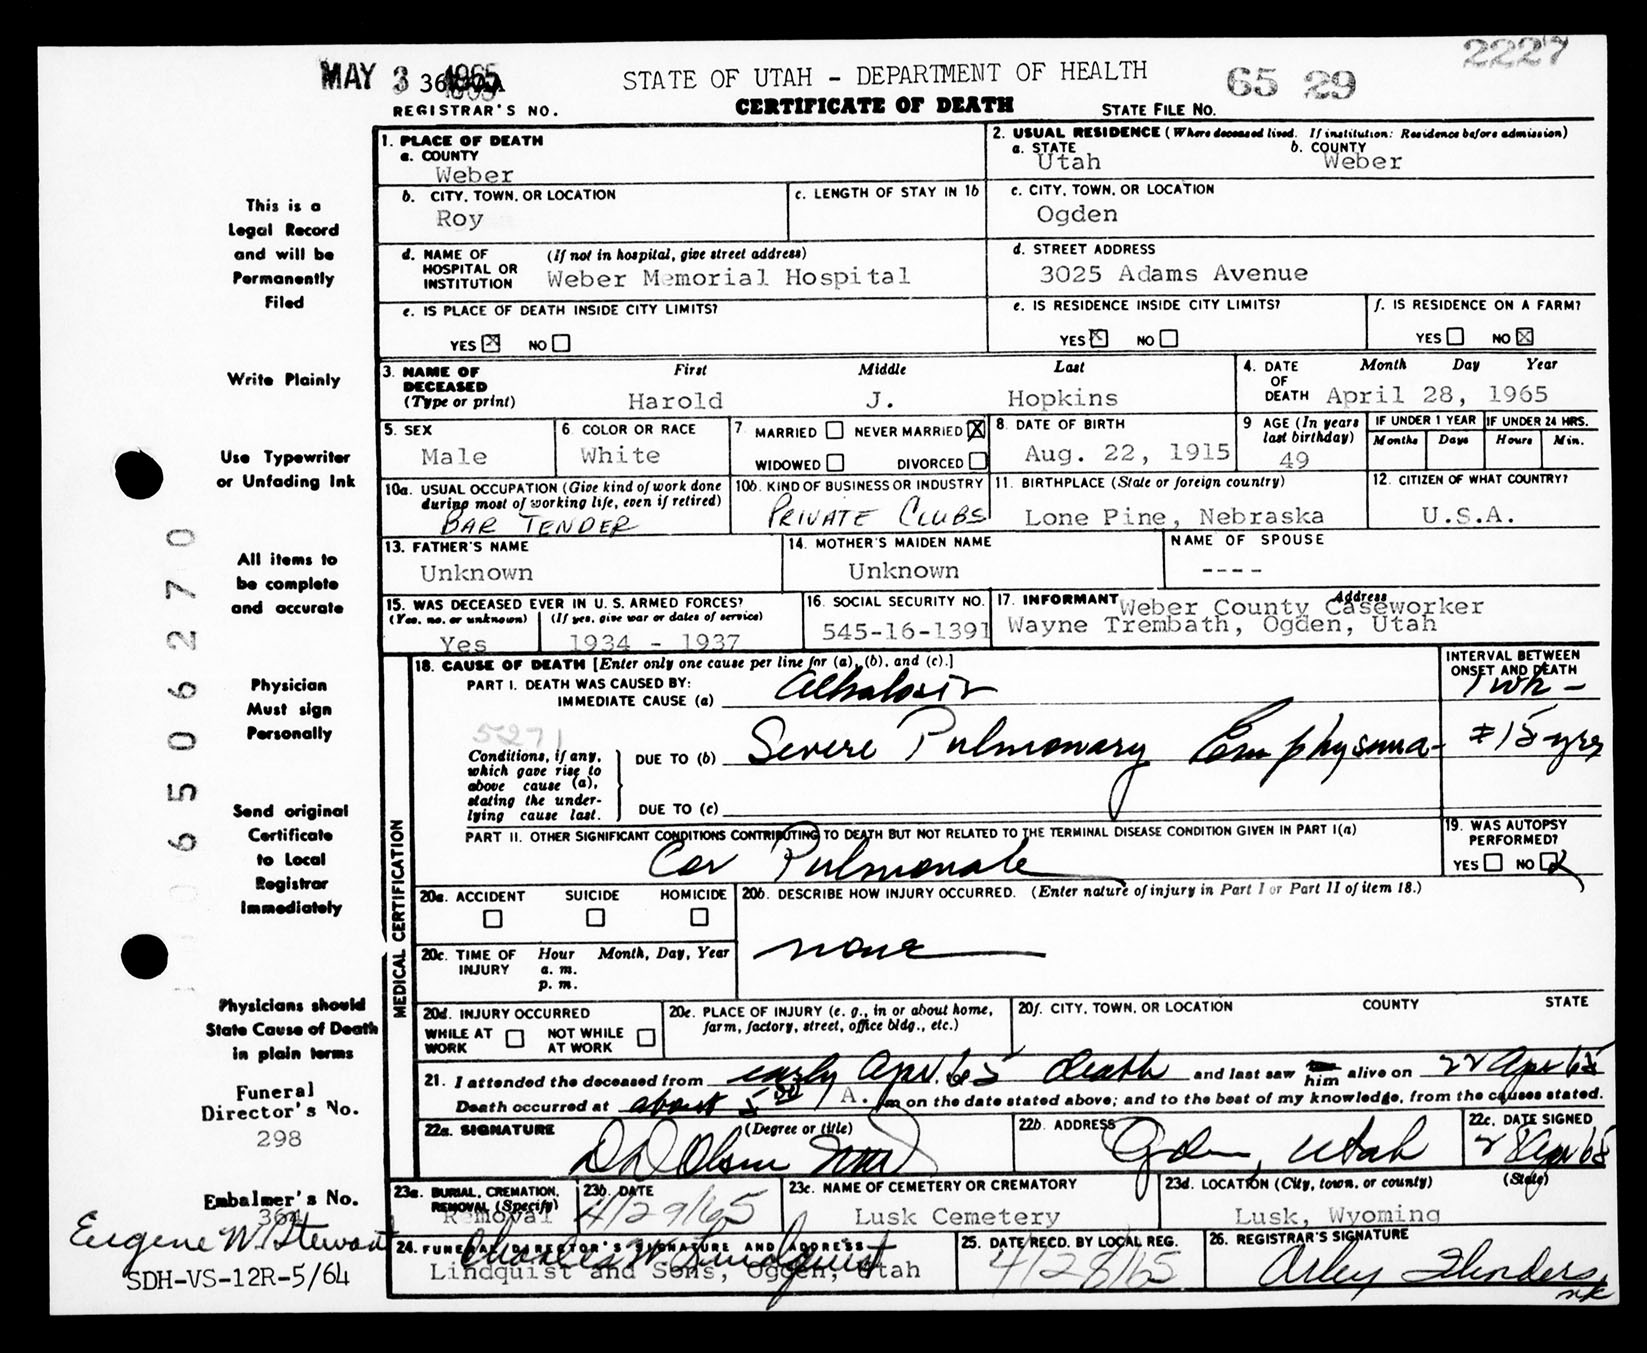 2227
MAY 3 1965
STATE OF UTAH - DEPARTMENT OF HEALTH
65 29
REGISTRAR'S NO.
CERTIFICATE OF DEATH
STATE FILE NO.
This is a
Legal Record
and will be
Permanently
Filed
Write Plainly
Use Typewriter
or Unfading Ink
All items to
be complete
and accurate
Physician
Must sign
Personally
Send original
Certificate
to Local
Registrar
Immediately
Physicians should
State Cause of Death
in plain terms
Funeral
Director's No.
298
Embalmer's No.
364
Eugene W. Stewart
SDH-VS-12R-5/64
6506270
1. PLACE OF DEATH
a. COUNTY
Weber
2. USUAL RESIDENCE (Where deceased lived. If institution: Residence before admission)
a. STATE b. COUNTY
Utah Weber
b. CITY, TOWN, OR LOCATION
Roy
c. LENGTH OF STAY IN 1b
c. CITY, TOWN, OR LOCATION
Ogden
d. NAME OF HOSPITAL OR INSTITUTION (If not in hospital, give street address)
Weber Memorial Hospital
d. STREET ADDRESS
3025 Adams Avenue
e. IS PLACE OF DEATH INSIDE CITY LIMITS?
YES ☒ NO ☐
e. IS RESIDENCE INSIDE CITY LIMITS?
YES ☒ NO ☐
f. IS RESIDENCE ON A FARM?
YES ☐ NO ☒
3. NAME OF DECEASED (Type or print)
First Middle Last
Harold J. Hopkins
4. DATE OF DEATH
Month Day Year
April 28, 1965
5. SEX
Male
6. COLOR OR RACE
White
7. MARRIED ☐ NEVER MARRIED ☒
WIDOWED ☐ DIVORCED ☐
8. DATE OF BIRTH
Aug. 22, 1915
9 AGE (In years last birthday)
49
IF UNDER 1 YEAR
Months Days
IF UNDER 24 HRS.
Hours Min.
10a. USUAL OCCUPATION (Give kind of work done during most of working life, even if retired)
BAR TENDER
10b. KIND OF BUSINESS OR INDUSTRY
PRIVATE CLUBS
11. BIRTHPLACE (State or foreign country)
Lone Pine, Nebraska
12. CITIZEN OF WHAT COUNTRY?
U.S.A.
13. FATHER'S NAME
Unknown
14. MOTHER'S MAIDEN NAME
Unknown
NAME OF SPOUSE
----
15. WAS DECEASED EVER IN U.S. ARMED FORCES?
(Yes, no, or unknown) (If yes, give war or dates of service)
Yes 1934 - 1937
16. SOCIAL SECURITY NO.
545-16-1391
17. INFORMANT Address
Weber County Caseworker
Wayne Trembath, Ogden, Utah
18. CAUSE OF DEATH [Enter only one cause per line for (a), (b), and (c).]
INTERVAL BETWEEN ONSET AND DEATH
PART I. DEATH WAS CAUSED BY:
IMMEDIATE CAUSE (a) Alkalosis 1 wk -
5271
Conditions, if any, which gave rise to above cause (a), stating the underlying cause last.
DUE TO (b) Severe Pulmonary Emphysema - ± 15 yrs
DUE TO (c)
PART II. OTHER SIGNIFICANT CONDITIONS CONTRIBUTING TO DEATH BUT NOT RELATED TO THE TERMINAL DISEASE CONDITION GIVEN IN PART I(a)
Cor Pulmonale
19. WAS AUTOPSY PERFORMED?
YES ☐ NO ☒
MEDICAL CERTIFICATION
20a. ACCIDENT SUICIDE HOMICIDE
20b. DESCRIBE HOW INJURY OCCURRED. (Enter nature of injury in Part I or Part II of item 18.)
none
20c. TIME OF INJURY Hour Month, Day, Year
a. m.
p. m.
20d. INJURY OCCURRED
WHILE AT WORK ☐ NOT WHILE AT WORK ☐
20e. PLACE OF INJURY (e. g., in or about home, farm, factory, street, office bldg., etc.)
20f. CITY, TOWN, OR LOCATION COUNTY STATE
21. I attended the deceased from early Apr. 65 death and last saw him alive on 22 Apr 65
Death occurred at about 5 00 A. m on the date stated above; and to the best of my knowledge, from the causes stated.
22a. SIGNATURE (Degree or title)
D D Olsen MD
22b. ADDRESS
Ogden, Utah
22c. DATE SIGNED
28 Apr 65
23a. BURIAL, CREMATION, REMOVAL (Specify)
Removal
23b. DATE
4/29/65
23c. NAME OF CEMETERY OR CREMATORY
Lusk Cemetery
23d. LOCATION (City, town, or county) (State)
Lusk, Wyoming
24. FUNERAL DIRECTOR'S SIGNATURE AND ADDRESS
Charles W Lindquist
Lindquist and Sons, Ogden, Utah
25. DATE RECD. BY LOCAL REG.
4/28/65
26. REGISTRAR'S SIGNATURE
Arley Flinders
nk